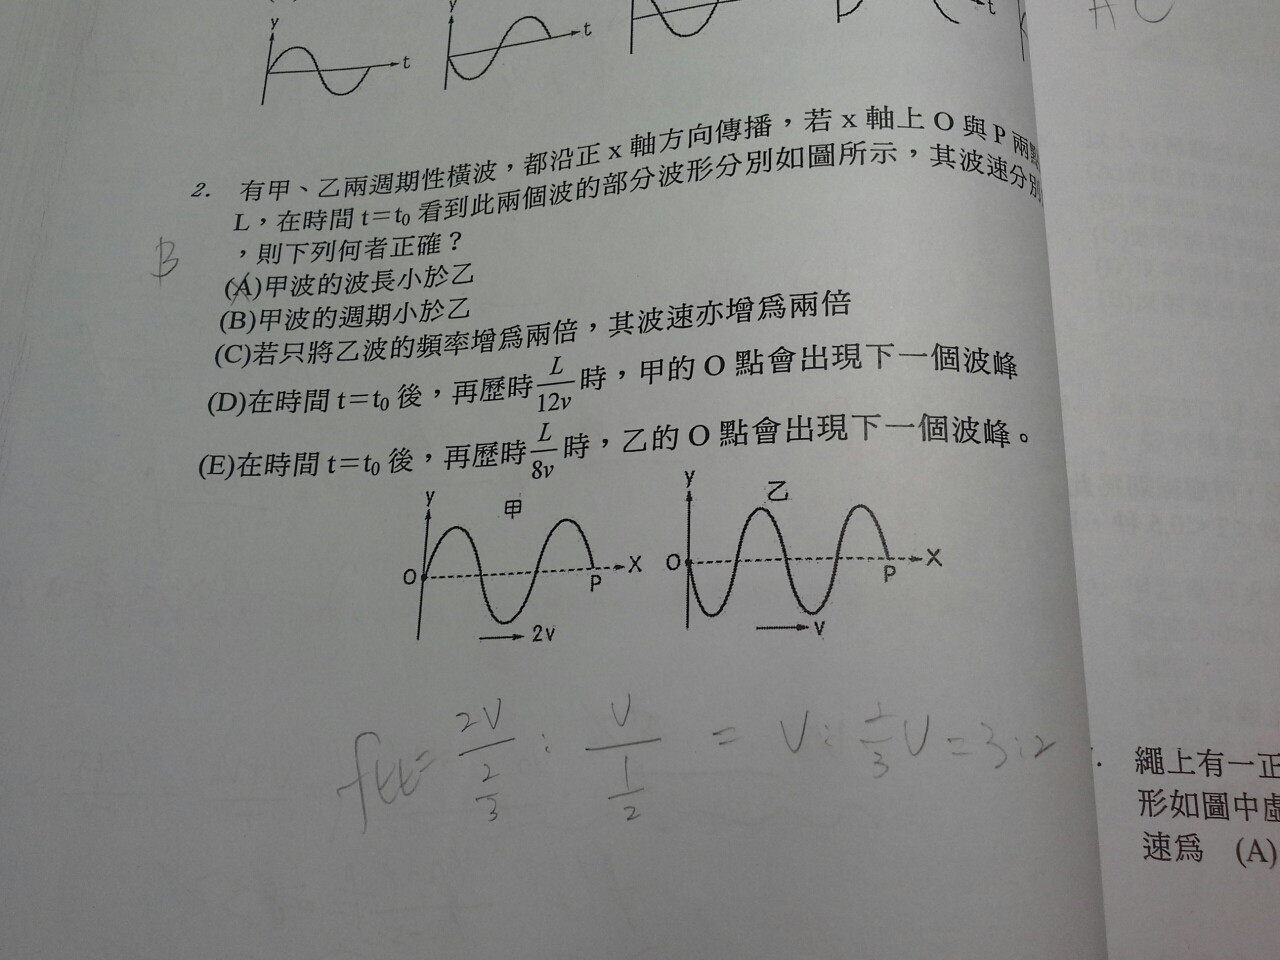 y
t
y
t
t
A C
2. 有甲、乙兩週期性橫波，都沿正 x 軸方向傳播，若 x 軸上 O 與 P 兩點
L，在時間 t＝t₀ 看到此兩個波的部分波形分別如圖所示，其波速分別
，則下列何者正確？
B
(A)甲波的波長小於乙
(B)甲波的週期小於乙
(C)若只將乙波的頻率增爲兩倍，其波速亦增爲兩倍
(D)在時間 t＝t₀ 後，再歷時 L/12v 時，甲的 O 點會出現下一個波峰
(E)在時間 t＝t₀ 後，再歷時 L/8v 時，乙的 O 點會出現下一個波峰。
y 甲
O P X
2v
y 乙
O P X
v
2V/(2/3) : V/(1/2) = V : 1/3 V = 3:2
繩上有一正
形如圖中虛
速爲 (A)